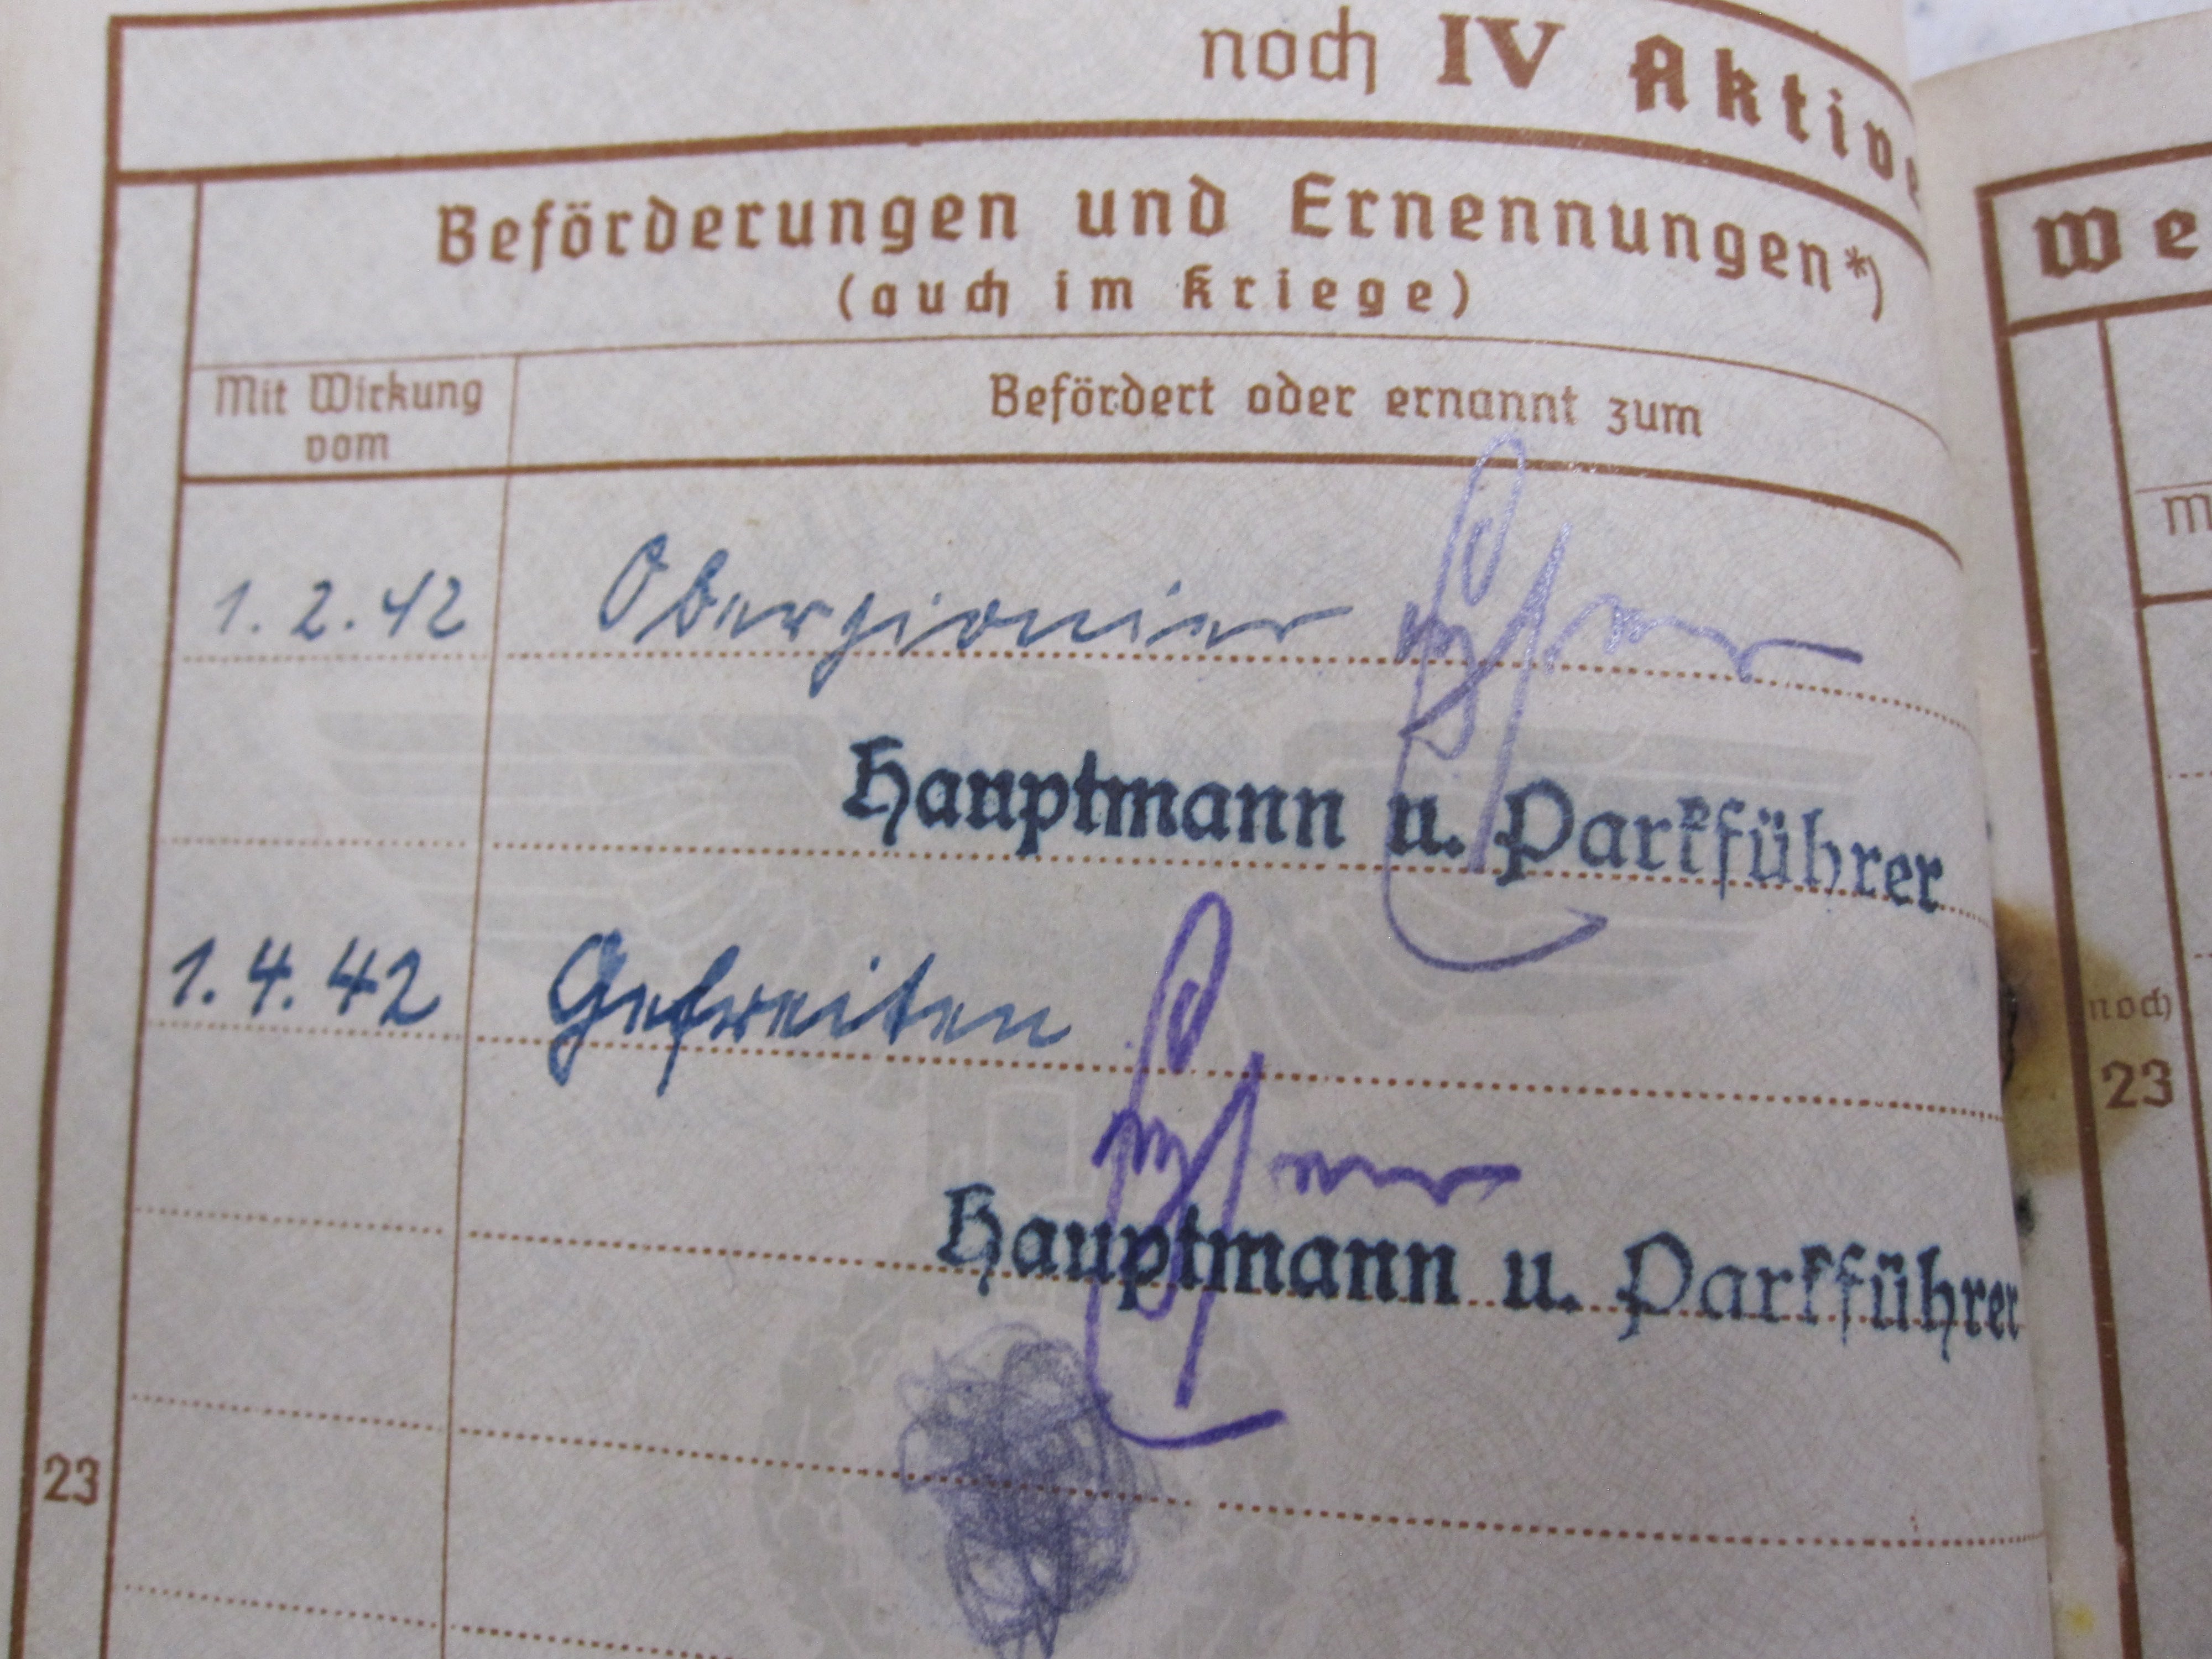 noch IV Aktive
Beförderungen und Ernennungen*)
(auch im Kriege)
Mit Wirkung
vom
Befördert oder ernannt zum
1.2.42 Oberpionier
Hauptmann u. Parkführer
1.4.42 Gefreiten
Hauptmann u. Parkführer
23
We
M
noch
23